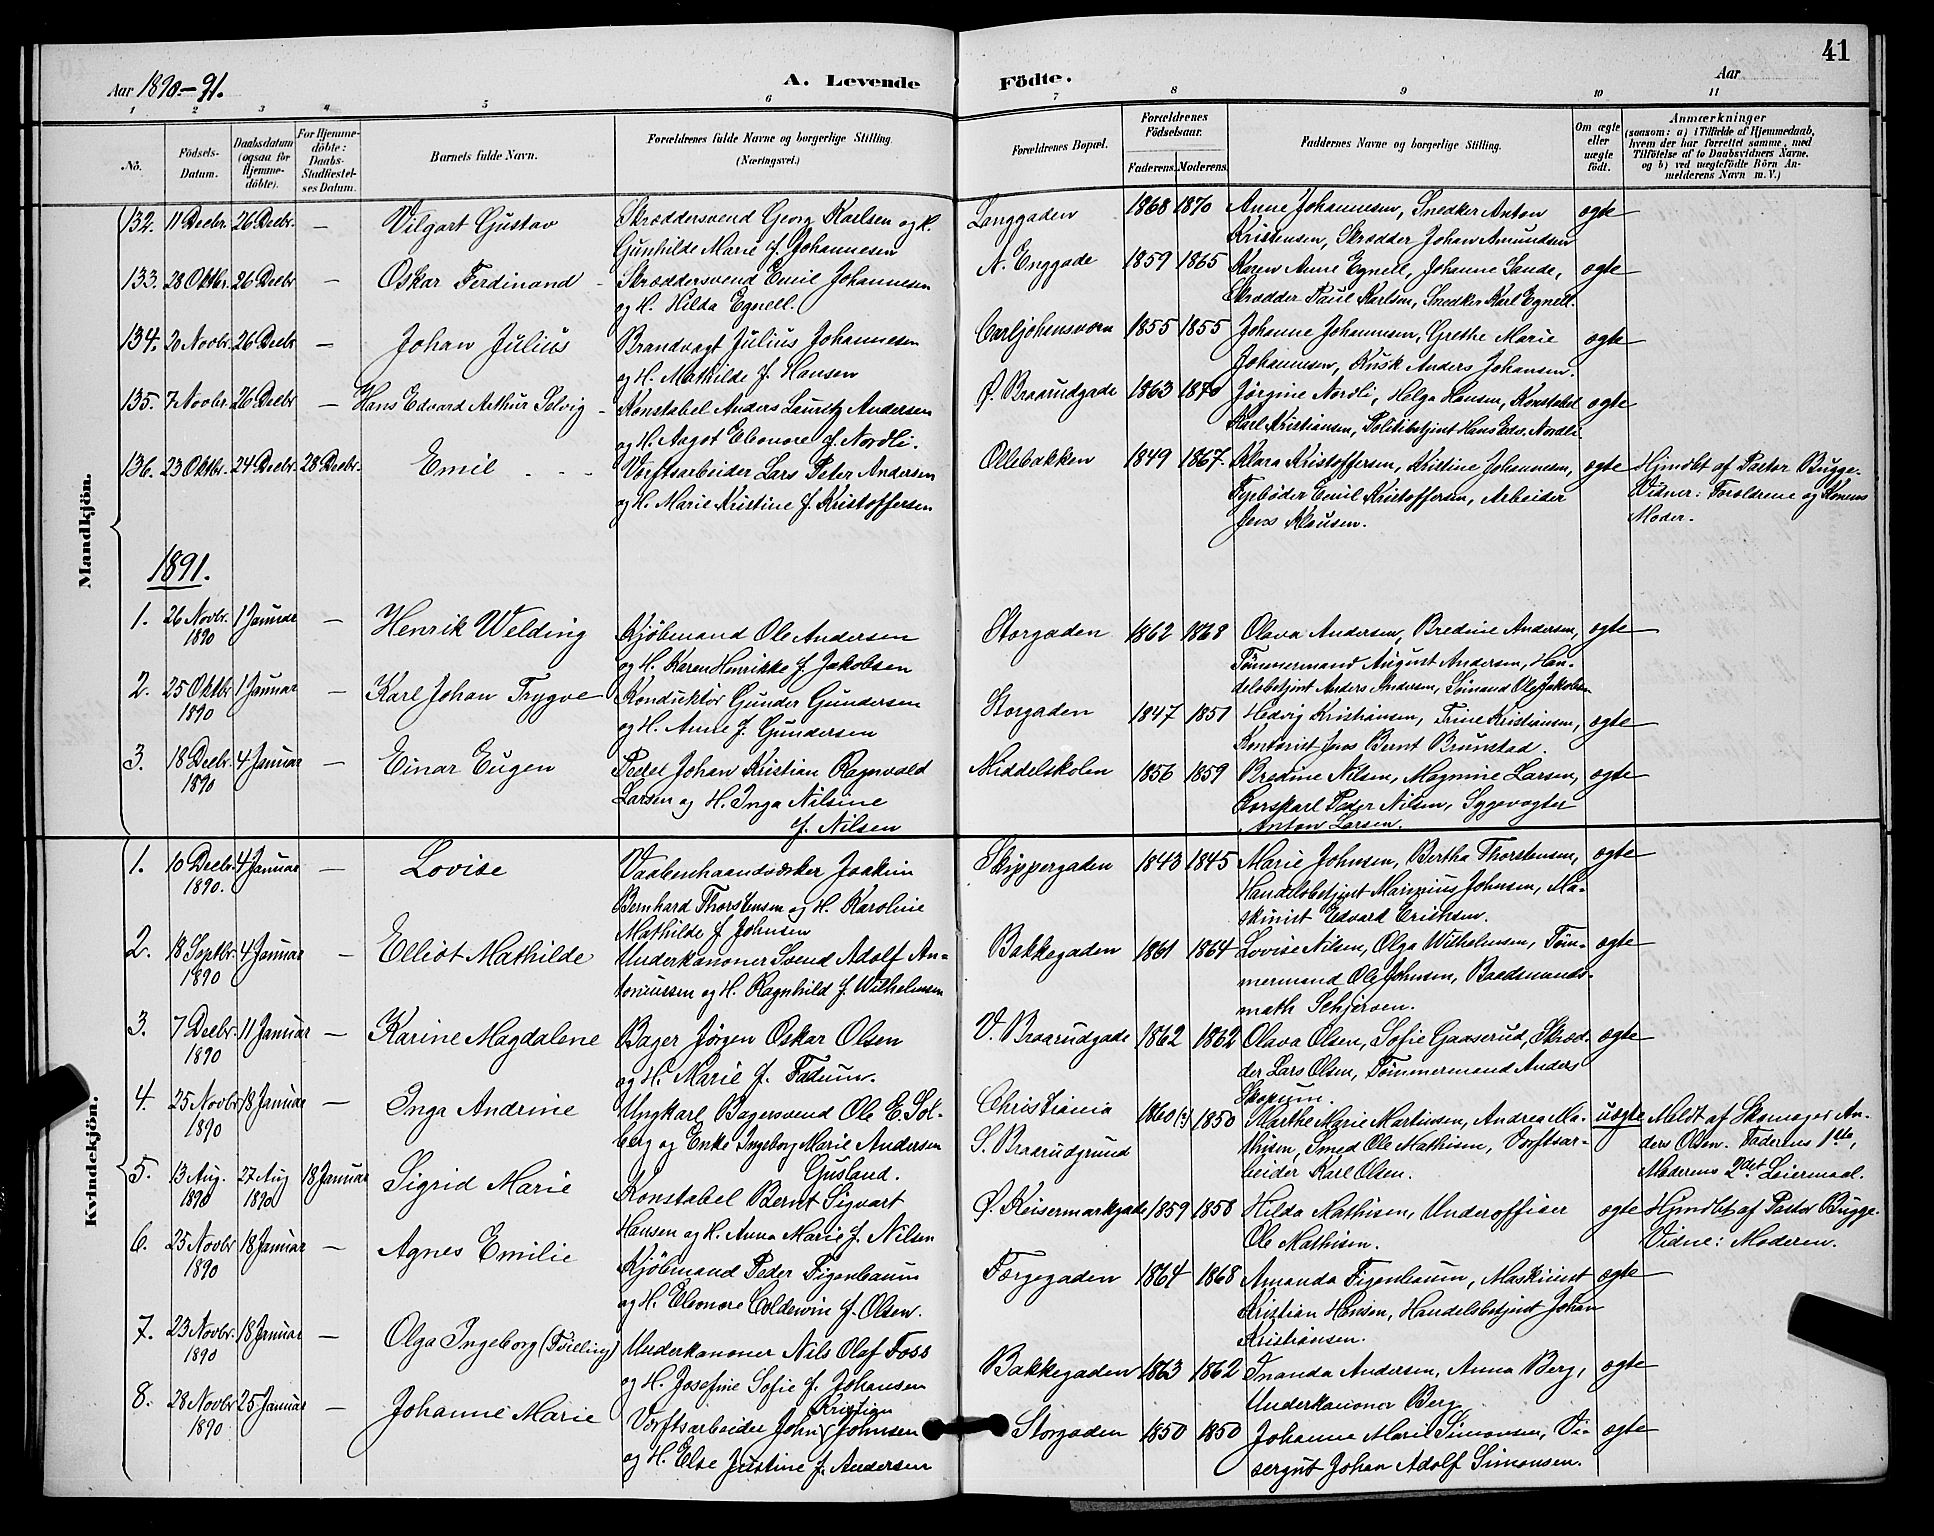 41
Aar 1890.-91.
A. Levende Födte.
Aar
1 2 3 4 5 6 7 8 9 10 11
No.
Födsels-Datum.
Daabsdatum (ogsaa for Hjemmedöbte).
For Hjemmedöbte: Daabs-Stadfæstelses Datum.
Barnets fulde Navn.
Forældrenes fulde Navne og borgerlige Stilling.
(Næringsvei.)
Forældrenes Bopæl.
Forældrenes Födselsaar.
Faderens. Moderens.
Faddernes Navne og borgerlige Stilling.
Om ægte eller uægte født.
Anmærkninger
(saasom: a) i Tilfælde af Hjemmedaab, hvem der har forrettet samme, med Tilföielse af to Daabsvidners Navne, og b) ved uægtefödte Börn Anmelderens Navn m.V.)
Mandkjön.
132. 11 Decbr. 26 Decbr. — Vilgart Gustav Skræddersvend Georg Karlsen og H. Langgaden 1868 1870 Anne Johannesen, Snedker Anton ægte
Gunhilde Marie f. Johannesen Kristensen, Skrædder Johan Amundsen
133. 28 Oktbr. 26 Decbr — Oskar Ferdinand Skræddersvend Emil Johannesen N. Enggade 1859 1865 Karen Anne Egnell, Johanne Sande, ægte
og H. Hilda Egnell. Skrædder Paul Karlsen, Snedker Karl Egnell.
134. 20 Novbr. 26 Decbr — Johan Julius Brandvagt Julius Johannesen Carljohansværn 1855 1855 Johanne Johannesen, Grethe Marie ægte
og H. Mathilde f. Hansen Johannesen, Kusk Anders Johansen.
135. 7 Novbr. 26 Decbr — Hans Edvard Arthur Solvig Konstabel Anders Lauritz Andersen Ø. Braarudgade 1863 1870 Jørgine Nordli, Helga Hansen, Konstabel ægte
og H. Aagot Eleonore f. Nordli. Karl Kristiansen, Politibetjent Hans Edv. Nordli
136. 23 Oktbr. 24 Decbr. 28 Decbr. Emil Værftsarbeider Lars Peter Andersen Ollebakken 1849 1867 Klara Kristoffersen, Kristine Johannesen, ægte Hjmdbt af Pastor Bugge.
og H. Marie Kristine f. Kristoffersen Fyrbøder Emil Kristoffersen, Arbeider Vidner: Forældrene og Konens
Jens Klausen. Moder.
1891.
1. 26 Novbr. 1890 1 Januar — Henrik Welding Kjøbmand Ole Andersen Storgaden 1862 1868 Olava Andersen, Bredine Andersen, ægte
og H. Karen Henrikke f. Jakobsen Tømmermand August Andersen, Han-
delsbetjent Anders Andersen, Sømand Ole Jakobsen
2. 25 Oktbr 1890 1 Januar — Karl Johan Trygve Konduktør Gunder Gundersen Storgaden 1847 1851 Hedvig Kristiansen, Trine Kristiansen, ægte
og H. Anne f. Gundersen Kontorist Jens Bernt Brunstad.
3. 18 Decbr. 1890 4 Januar — Einar Eugen Pedel Johan Kristian Ragnvald Middelskolen 1856 1859 Bredine Nilsen, Magnine Larsen, ægte
Larsen og H. Inga Nilsine Korskarl Peder Nilsen, Sygevogter
f. Nilsen Anton Larsen.
Kvindekjön.
1. 10 Decbr 1890. 4 Januar — Lovise Vaabenhaandværker Joakim Skippergaden 1843 1845 Marie Johnsen, Bertha Thorstensen, ægte
Bernhard Thorstensen og H. Karoline Handelsbetjent Marinius Johnsen, Ma-
Mathilde f. Johnsen skinist Edvard Erichsen.
2. 18 Septbr. 1890 4 Januar — Elliot Mathilde Underkanoner Svend Adolf An- Bakkegaden 1861 1864 Lovise Nilsen, Olga Wilhelmsen, Tøm- ægte
toniussen og H. Ragnhild f. Wilhelmsen mermand Ole Johnsen, Baadsmands-
math Schjersen.
3. 7 Decbr. 1890 11 Januar — Karine Magdalene Bager Jørgen Oskar Olsen V. Braarudgade 1862 1862 Olava Olsen, Sofie Gaaserud, Skræd- ægte
og H. Marie f. Fadum. der Lars Olsen, Tømmermand Anders
Skopum.
4. 25 Novbr 1890 18 Januar — Inga Andrine Ungkarl Bagersvend Ole E. Sol- Christiania 1860 (?) 1850 Marthe Marie Martinsen, Andrea Ma- uægte Meldt af Skomager An-
berg og Enke Ingeborg Marie Andersen S. Braarudgrund thisen, Smed Ole Mathisen, Værftsar- ders Olsen. Faderens 1ste,
Gusland. beider Karl Olsen. Moderens 2det Leiermaal.
5. 13 Aug. 1890 27 Aug 1890 18 Januar Sigrid Marie Konstabel Bernt Sigvart Ø. Keisermarkgade 1859 1858 Hilda Mathisen, Underofficer ægte Hjmdbt af Pastor Bugge.
Hansen og H. Anna Marie f. Nilsen Ole Mathisen. Vidne: Moderen.
6. 25 Novbr 1890 18 Januar — Agnes Emilie Kjøbmand Peder Figenbaum Færgegaden 1864 1868 Amanda Figenbaum, Maskinist ægte
og H. Eleonore Coldewin f. Olsen. Kristian Hansen, Handelsbetjent Johan
Kristiansen.
7. 23 Novbr. 1890 18 Januar — Olga Ingeborg (Tvilling) Underkanoner Nils Olaf Foss Bakkegaden 1863 1862 Inanda Andersen, Anna Berg, ægte
og H. Josefine Sofie f. Johansen Underkanoner Berg
8. 28 Novbr 1890 25 Januar — Johanne Marie Værftsarbeider John Kristian Johnsen Storgaden 1850 1850 Johanne Marie Simonsen, Vi- ægte
og H. Else Justine f. Andersen sergut Johan Adolf Simonsen.